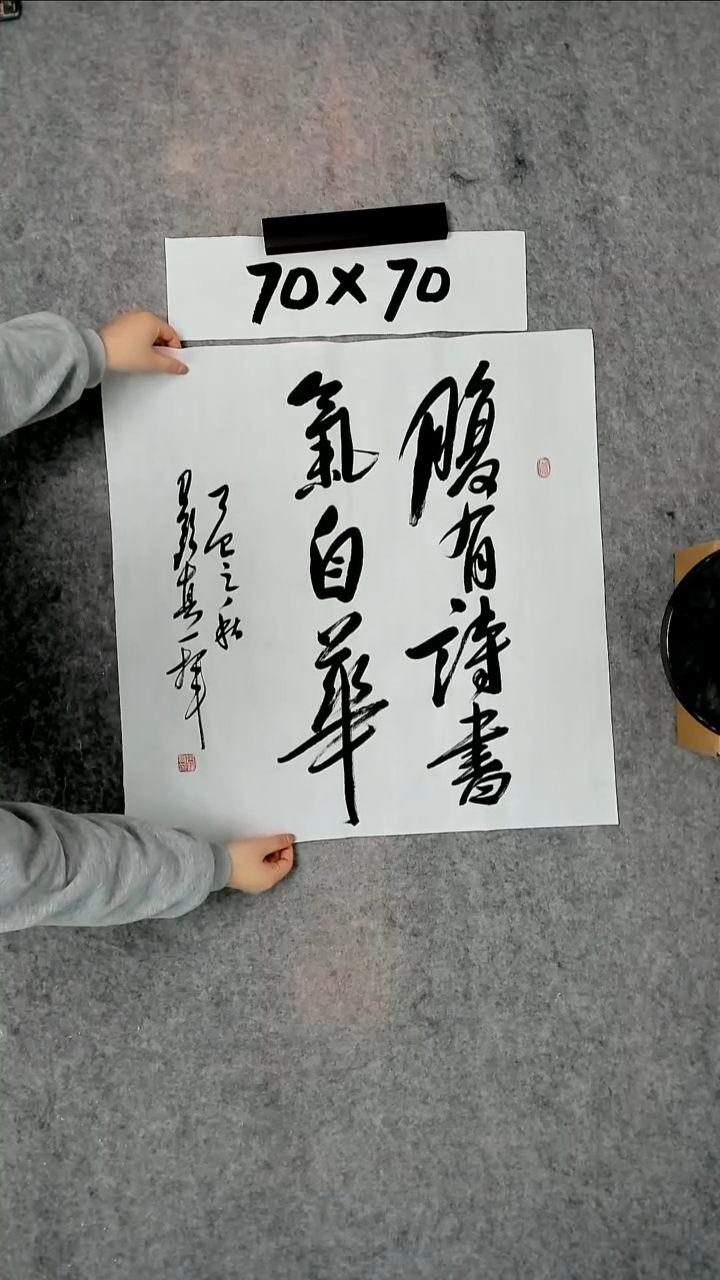 70×70
腹有詩書
氣自華
乙巳之秋
真一揮